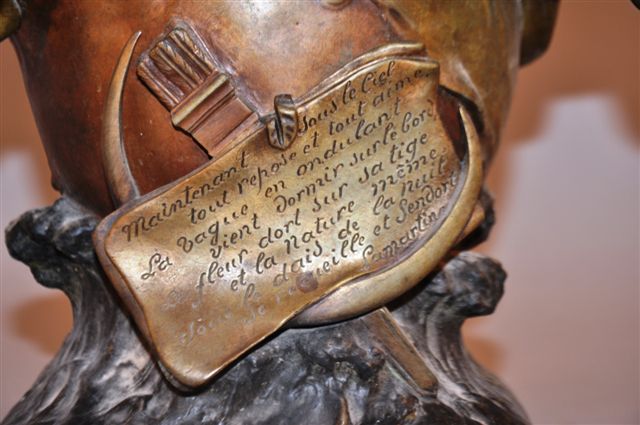 Maintenant sous le Ciel
tout repose et tout aime
La vague en ondulant
vient dormir sur le bord
La fleur dort sur sa tige
et la nature même
sous le dais de la nuit
se recueille et Sendort
Lamartine